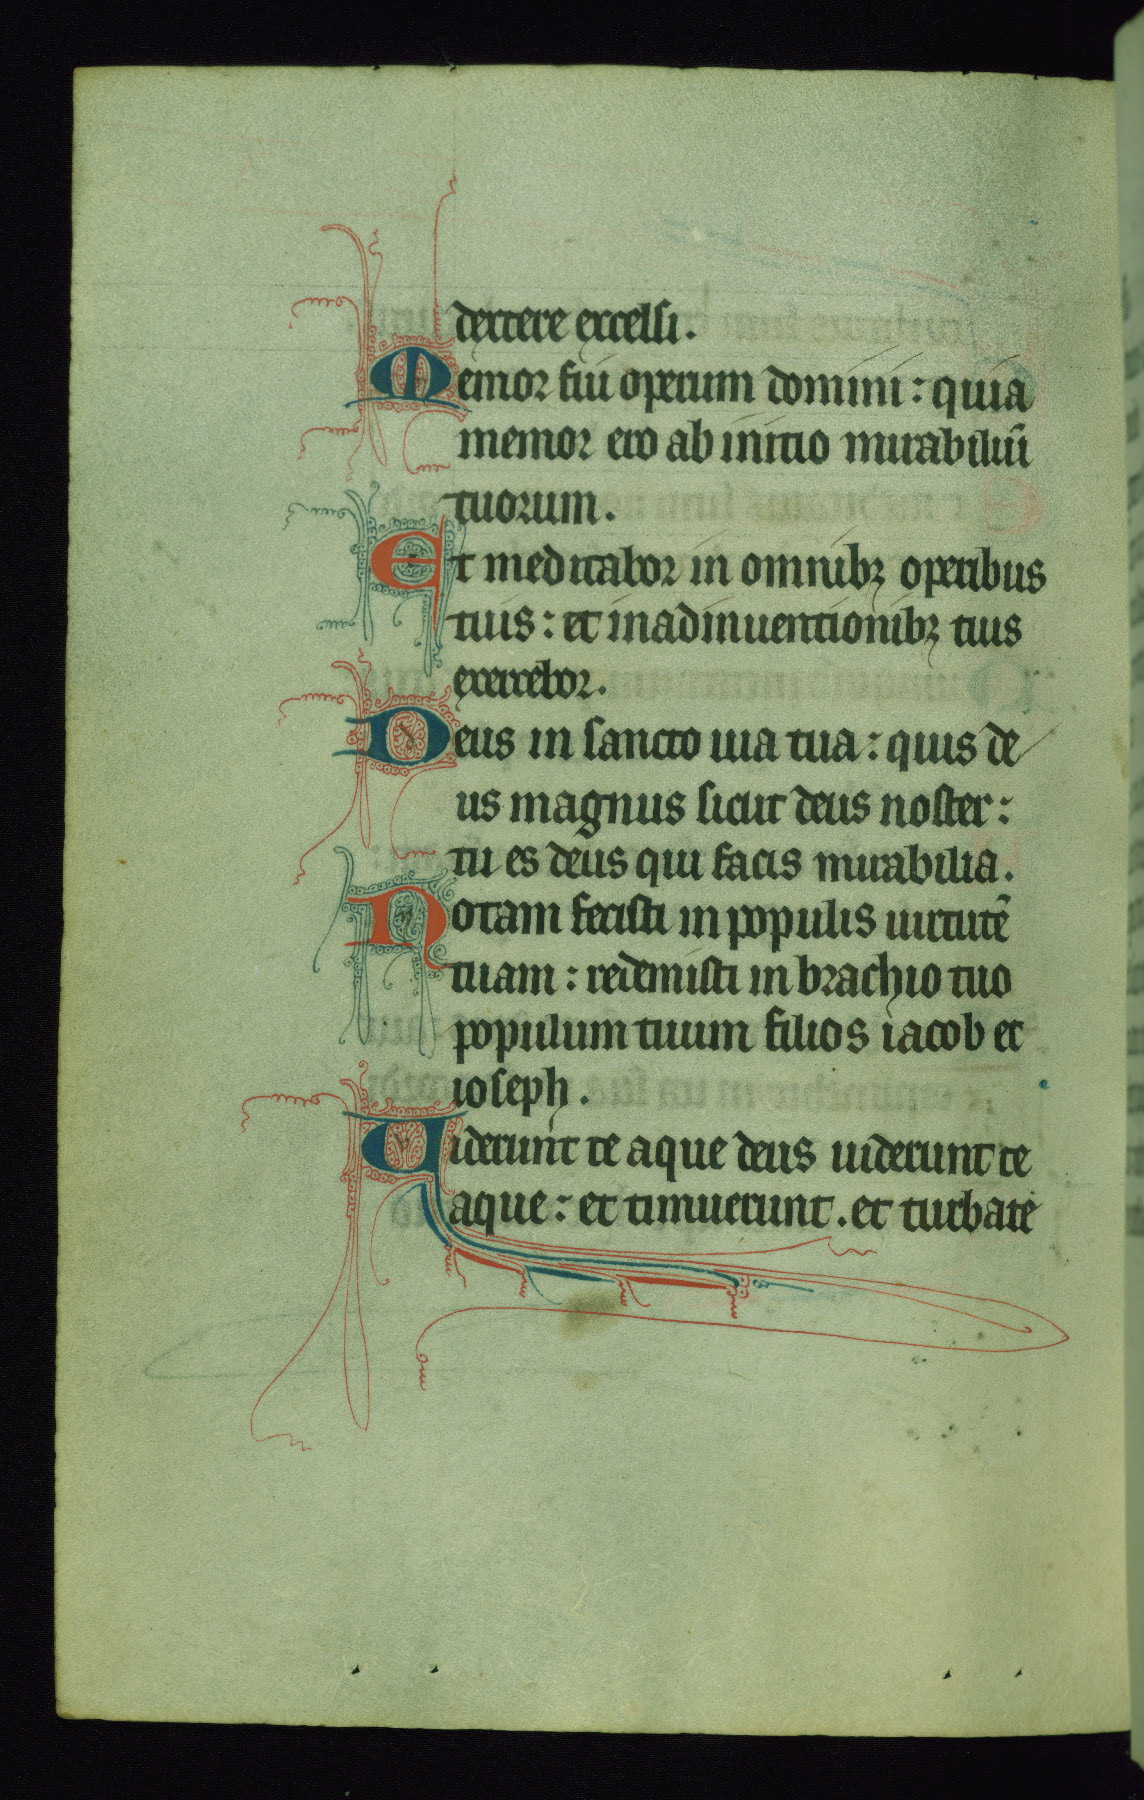 dextere excelsi.
Memor fui operum domini: quia
memor ero ab initio mirabiliū
tuorum.
Et meditabor in omnibꝫ operibus
tuis: et in adinuentionibꝫ tuis
exercebor.
Deus in sancto uia tua: quis de
us magnus sicut deus noster:
tu es deus qui facis mirabilia.
Notam fecisti in populis uirtutē
tuam: redemisti in brachio tuo
populum tuum filios iacob et
ioseph.
Uiderunt te aque deus uiderunt te
aque: et timuerunt. et turbate